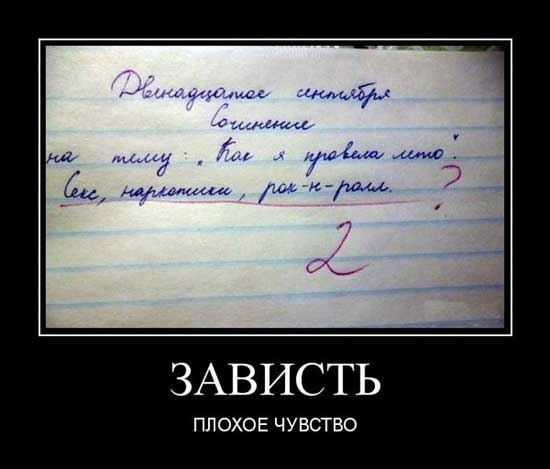 Двенадцатое сентября
Сочинение
на тему: „Как я провела лето".
Секс, наркотики, рок-н-ролл. ?
2
ЗАВИСТЬ
ПЛОХОЕ ЧУВСТВО